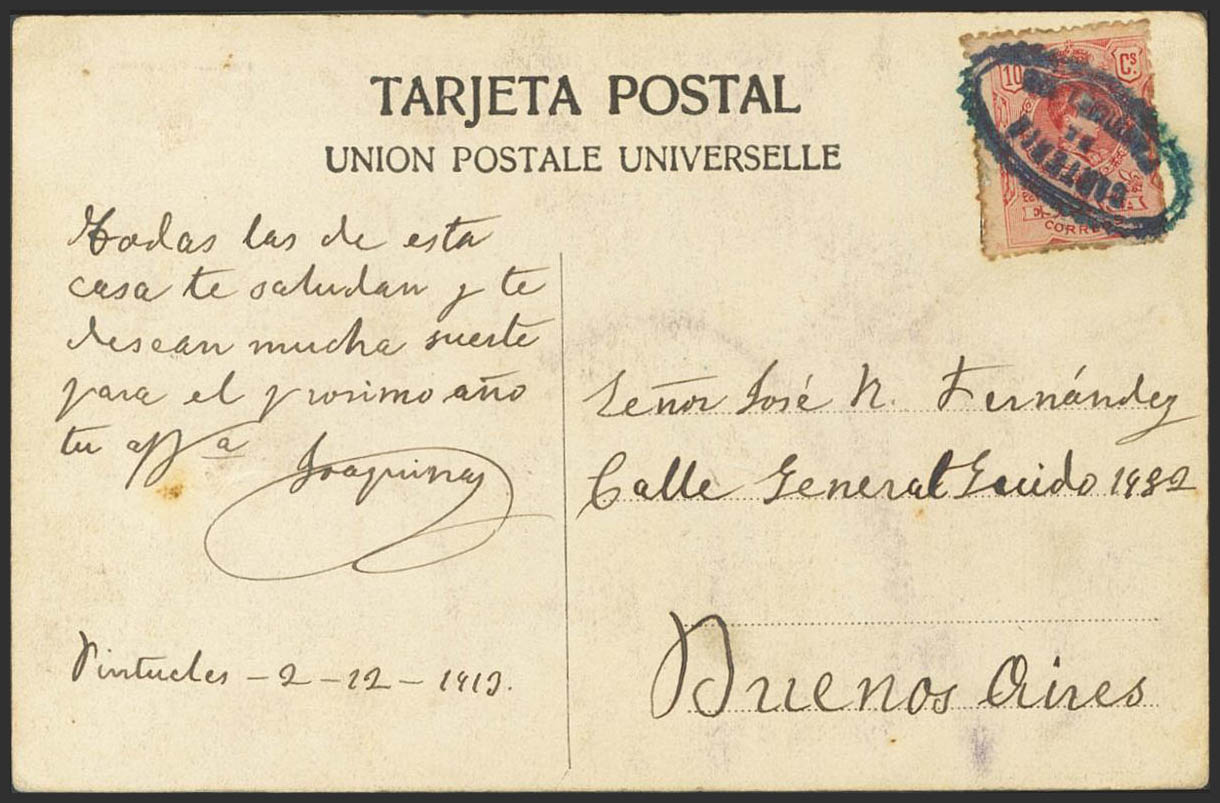 TARJETA POSTAL
UNION POSTALE UNIVERSELLE
10 Cs.
CARTERIA
CORREOS
Todas las de esta
casa te saludan y te
desean mucha suerte
para el prosimo año
tu affª Joaquina
Señor José R. Fernández
Calle General Guido 1482
Buenos Aires
2-12-1913.